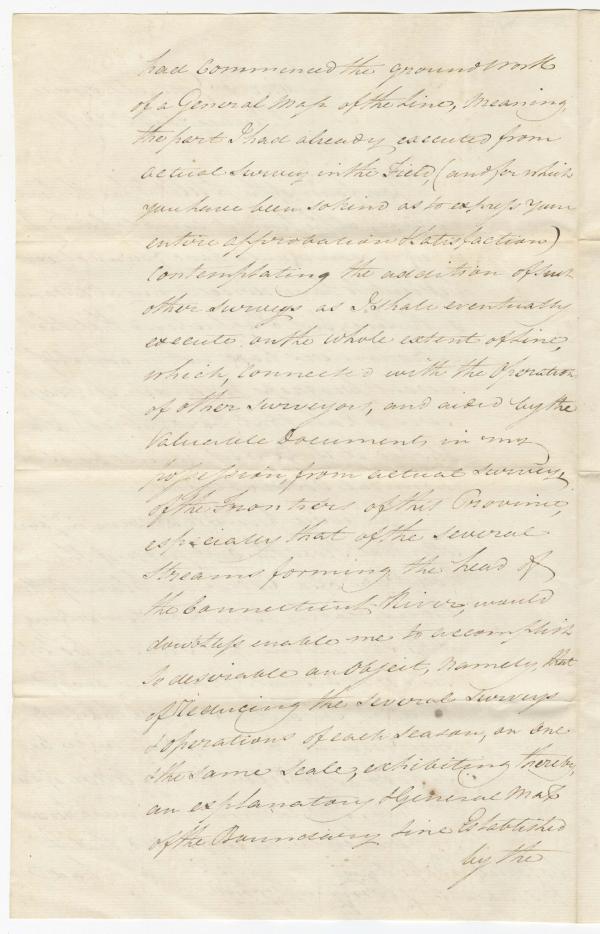 had Commenced the ground Work
of a General Map of the Line, Meaning
the part I had already executed from
actual Survey in the Field, (and for which
you have been so kind as to express your
entire approbation & Satisfaction)
Contemplating the addition of such
other Surveys as I shall eventually
execute on the whole extent of Line,
which, Connected with the Operation
of other Surveyors, and aided by the
Valuable Documents in my
possession, from actual Surveys
of the Frontiers of this Province,
especially that of the several
Streams forming the head of
the Connecticut River, would
doubtless enable me to accomplish
so desirable an Object, Namely, that
of Reducing the several Surveys
& operations of each Season, on One
& the same Scale, exhibiting thereby,
an explanatory & General Map
of the Boundary Line Established
by the